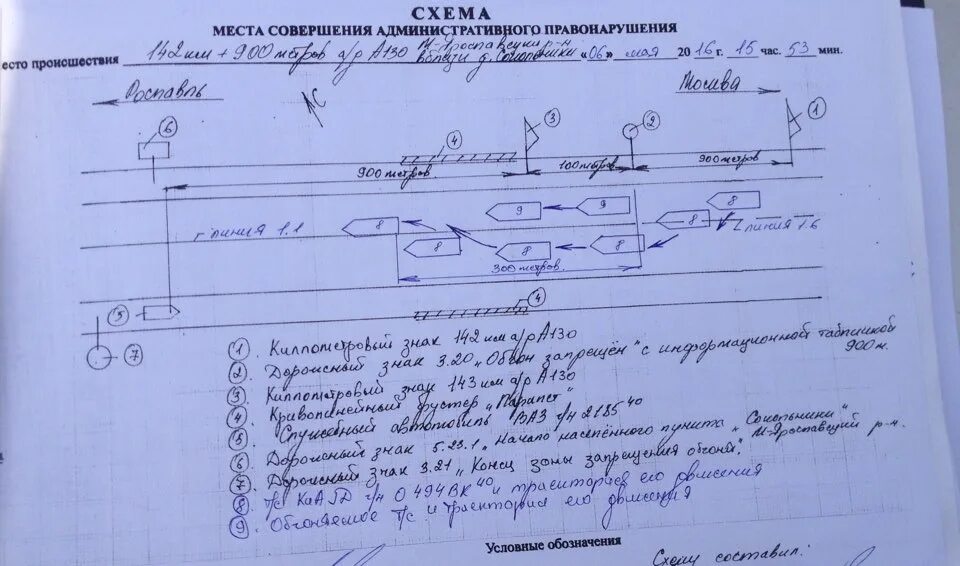 СХЕМА
МЕСТА СОВЕРШЕНИЯ АДМИНИСТРАТИВНОГО ПРАВОНАРУШЕНИЯ
есто происшествия 142 км + 900 метров а/р А130 М-Ярославецкий р-н вблизи д. Сокольники «06» мая 2016 г. 15 час. 53 мин.
Рославль
С
Москва
6
4
3
2
1
900 метров
100 метров
900 метров
8
9
9
8
8
линия 1.1
8
8
8
линия 1.6
300 метров
5
4
7
1. Киллометровый знак 142 км а/р А130
2. Дорожный знак 3.20 „Обгон запрещён" с информационной табличкой 900 м.
3. Киллометровый знак 143 км а/р А130
4. Криволинейный брустер „Парапет"
5. Служебный автомобиль ВАЗ г/н 2185 40
6. Дорожный знак 5.23.1 „Начало населённого пункта „Сокольники" М-Ярославецкий р-н.
7. Дорожный знак 3.21 „Конец зоны запрещения обгона".
8. Т/с КиА г/н О 494 ВК 40 и траектория его движения
9. Обгоняемое Т/с и траектория его движения
Условные обозначения
Схему составил: